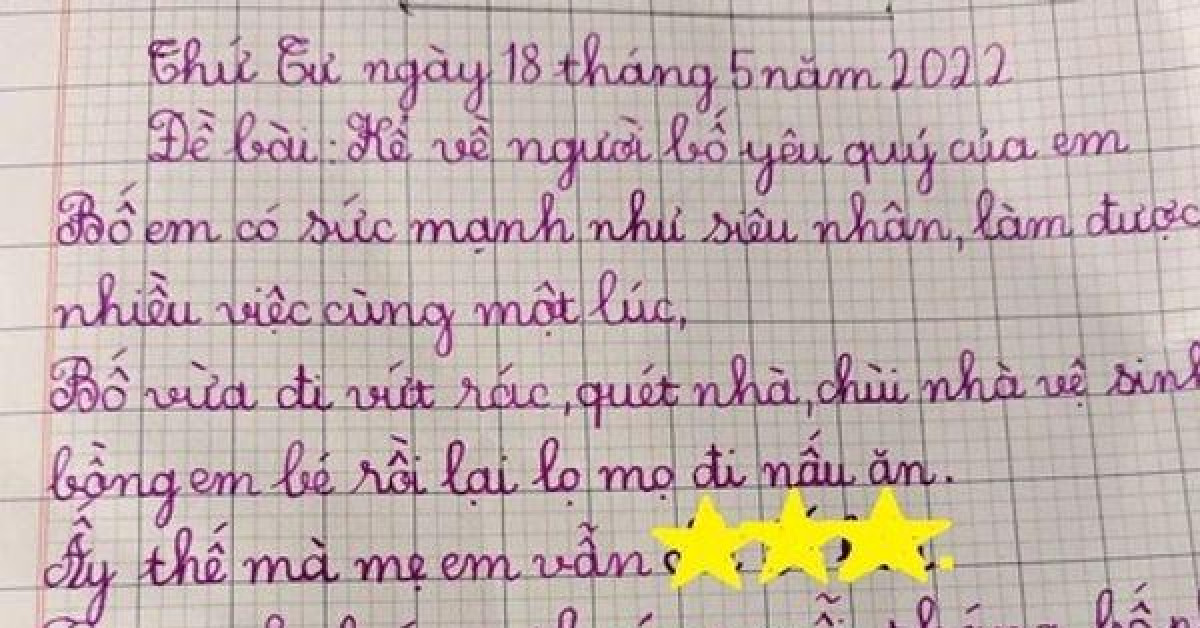 Thứ Tư ngày 18 tháng 5 năm 2022
Đề bài: Kể về người bố yêu quý của em
Bố em có sức mạnh như siêu nhân, làm được
nhiều việc cùng một lúc,
Bố vừa đi vứt rác, quét nhà, chùi nhà vệ sinh
bồng em bé rồi lại lọ mọ đi nấu ăn.
Ấy thế mà mẹ em vẫn